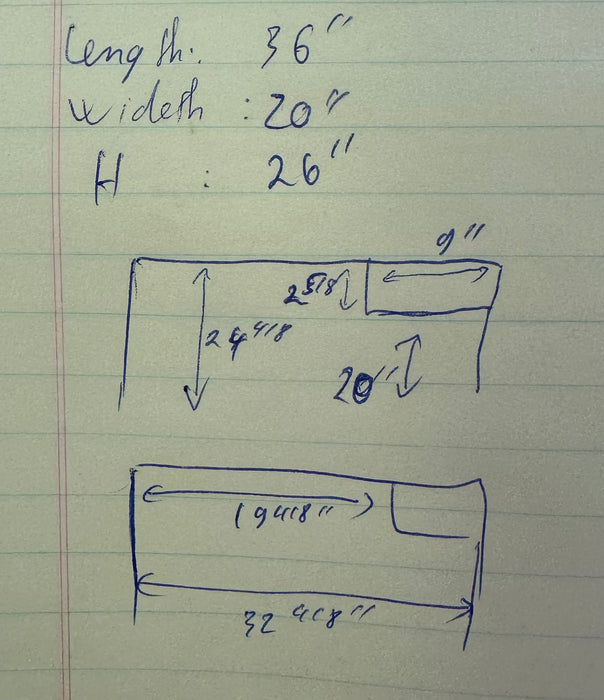 Length: 36"
wideth : 20"
H : 26"
9"
2 5/8
24 4/8
20"
19 4/8"
32 4/8"